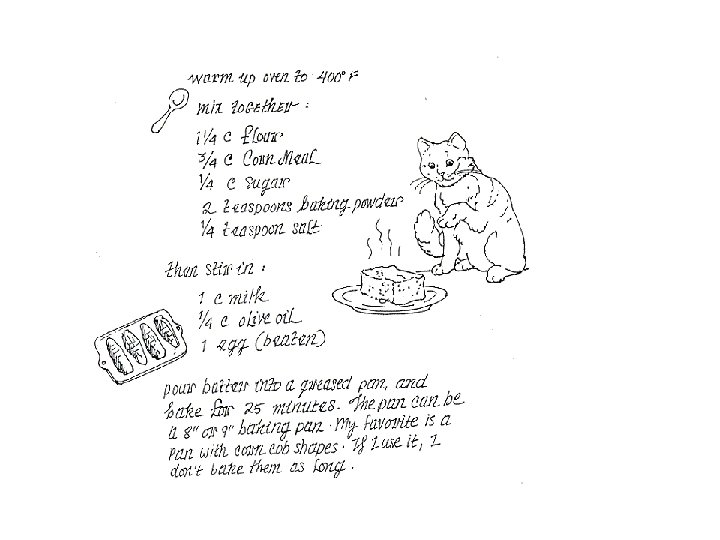 warm up oven to 400° F
mix together :
1 1/4 c flour
3/4 c Corn Meal
1/4 c sugar
2 teaspoons baking powder
1/4 teaspoon salt
then stir in :
1 c milk
1/4 c olive oil
1 egg (beaten)
pour batter into a greased pan, and
bake for 25 minutes. The pan can be
a 8" or 9" baking pan. My favorite is a
pan with corn cob shapes. If I use it, I
don't bake them as long.